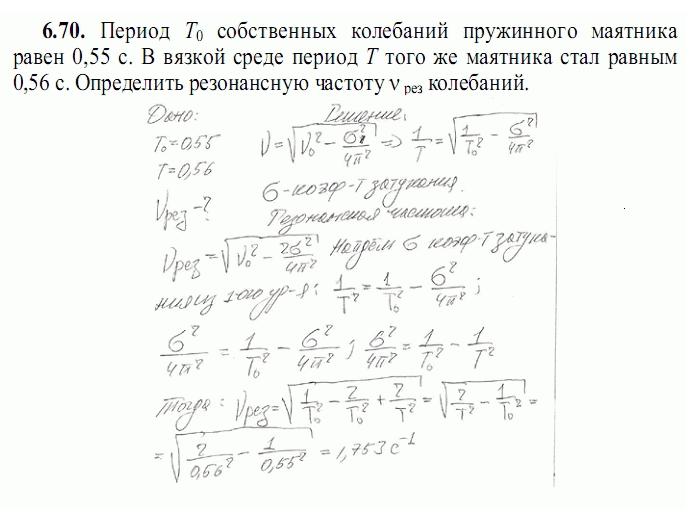 6.70. Период T₀ собственных колебаний пружинного маятника
равен 0,55 с. В вязкой среде период T того же маятника стал равным
0,56 с. Определить резонансную частоту ν рез колебаний.
Дано: Решение:
T₀=0,55 ν=√(ν₀² − σ²/4π²) => 1/T=√(1/T₀² − σ²/4π²)
T=0,56
σ-коэф-т затухания.
νрез-? Резонансная частота:
νрез=√(ν₀² − 2σ²/4π²) Найдём σ коэф-т затуха-
ния из 1ого ур-я: 1/T²=1/T₀² − σ²/4π²;
σ²/4π² = 1/T₀² − σ²/4π²; σ²/4π²=1/T₀² − 1/T²
Тогда: νрез=√(1/T₀² − 2/T₀² + 2/T²)=√(2/T² − 1/T₀²)=
=√(2/0,56² − 1/0,55²) =1,753с⁻¹